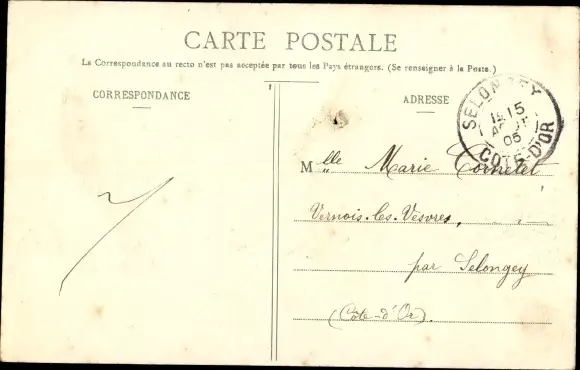 CARTE POSTALE
La Correspondance au recto n'est pas acceptée par tous les Pays étrangers. (Se renseigner à la Poste.)
CORRESPONDANCE
ADRESSE
SELONGEY
15
AOUT
05
COTE-D'OR
Mlle Marie Cornetet
Vernois-les-Vesvres,
par Selongey
(Côte-d'Or).